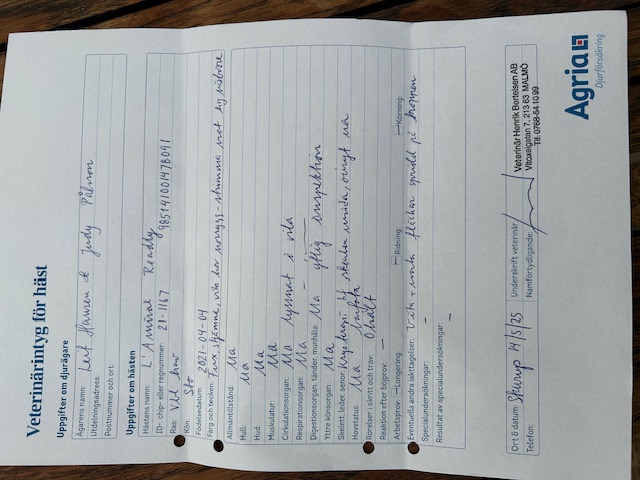 Agria
Djurförsäkring
Veterinärintyg för häst
Uppgifter om djurägare
Ägarens namn: Leif Hansen & Judy Pålsson
Utdelningsadress:
Postnummer och ort:
Uppgifter om hästen
Hästens namn: L'Amiral Readly
ID-, chip- eller regnummer: 21-1167 985141001478091
Ras:
Kön Sto
Födelsedatum 2021-04-04
Färg och tecken: Fux, stjärna, vita
Allmäntillstånd: Ua
Hull: Ua
Hud: Ua
Muskulatur: Ua
Cirkulationsorgan: Ua lyssnat i vila
Respirationsorgan: Ua
Digestionsorgan, tänder, munhåla: Ua ytlig inspektion
Yttre könsorgan: Ua
Skelett, leder, senor: bf övrigt ua
Hovstatus: Ua
Rörelser i skritt och trav: Ohalt
Reaktion efter böjprov: –
Arbetsprov: Longering Ridning Körning:
Eventuella andra iakttagelser: Vita + fläckar spridd på kroppen
Specialundersökningar: –
Resultat av specialundersökningar: –
Ort & datum: Skurup 14/5/25
Telefon:
Underskrift veterinär
Namnförtydligande:
Veterinär Henrik Bertelsen AB
Vitoxelgatan 7, 213 63 MALMÖ
Tlf. 0768-54 10 99